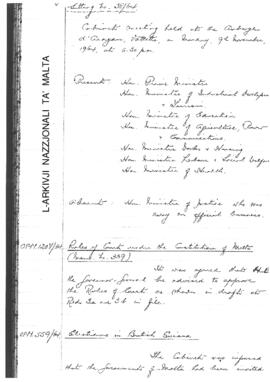 Sitting No. 38/64
Cabinet meeting held at the Auberge
d'Aragon, Valletta, on Monday, 9th November,
1964, at 6.30 p.m.
Present: Hon. Prime Minister
Hon. Minister of Industrial Development
& Tourism
Hon. Minister of Education
Hon. Minister of Agriculture, Power
& Communications
Hon. Minister Works & Housing
Hon. Minister Labour & Social Welfare
Hon. Minister of Health.
Absent: Hon. Minister of Justice who was
away on official business.
L-ARKIVJI NAZZJONALI TA' MALTA
Rules of Court under the Constitution of Malta
It was agreed that
the Governor-General be advised to approve
the Rules of Court as shown in drafts at
Reds 3a and 3b in file.
OPM.559/64
Elections in British Guiana
The Cabinet was informed
that the Government of Malta had been invited